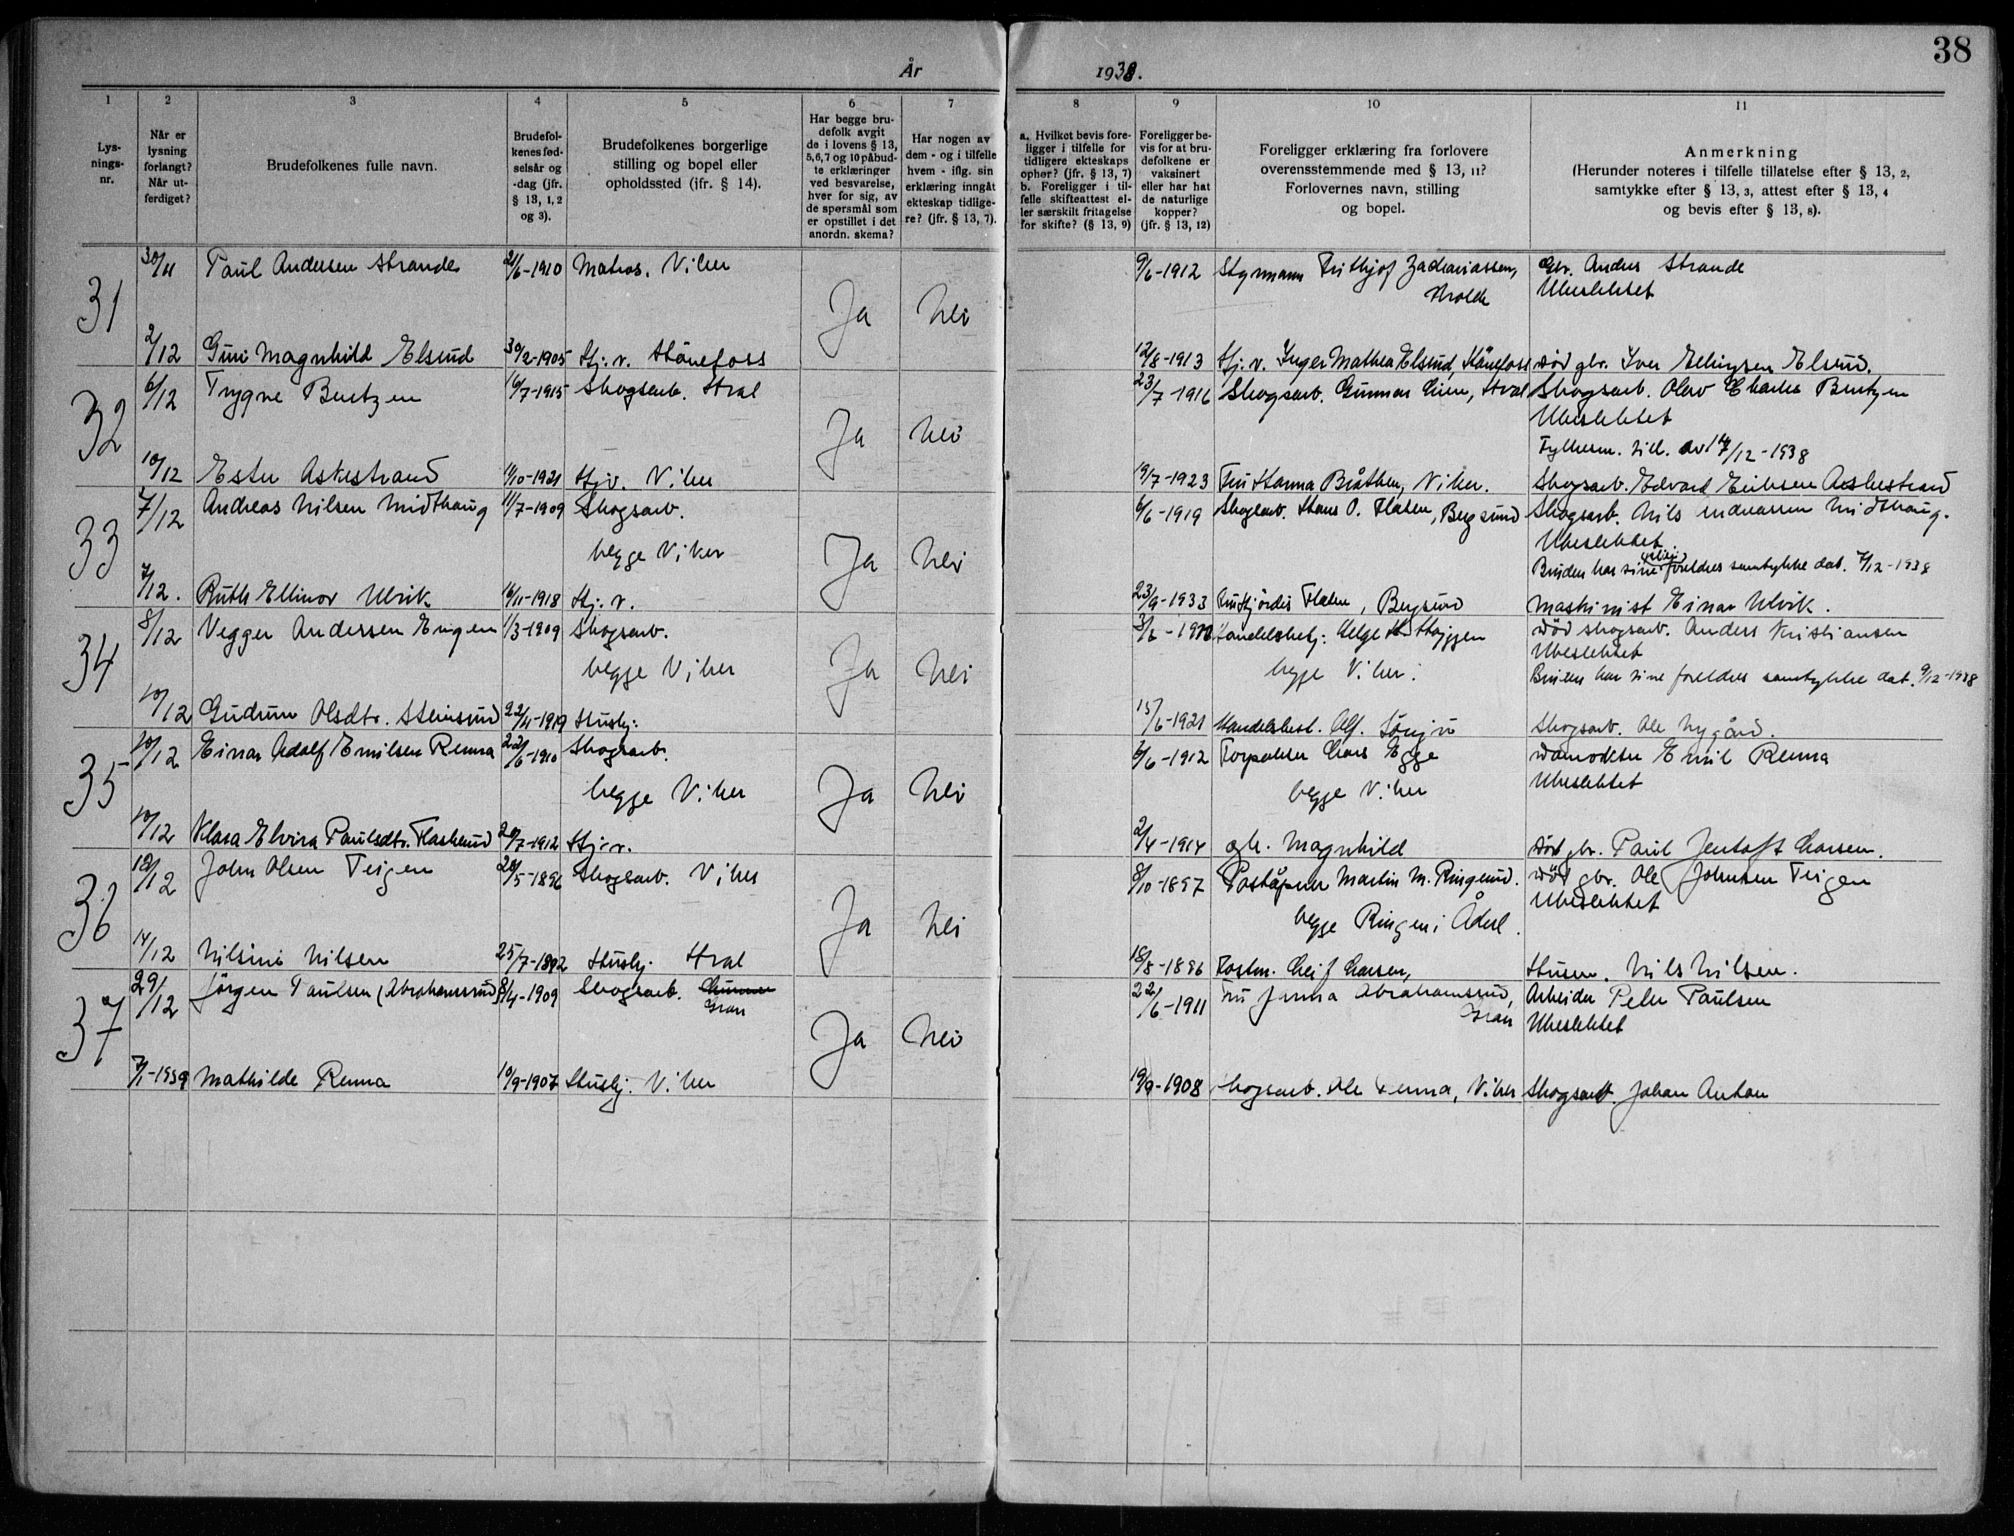 38
År 1938.
1 2 3 4 5 6 7 8 9 10 11
Lys-
nings-
nr.
Når er
lysning
forlangt?
Når ut-
ferdiget?
Brudefolkenes fulle navn.
Brudefol-
kenes fød-
selsår og
-dag (jfr.
§ 13, 1, 2
og 3).
Brudefolkenes borgerlige
stilling og bopel eller
opholdssted (jfr. § 14).
Har begge bru-
defolk avgit
de i lovens § 13,
5, 6, 7 og 10 påbud-
te erklæringer
ved besvarelse,
hver for sig, av
de spørsmål som
er opstillet i det
anordn. skema?
Har nogen av
dem - og i tilfelle
hvem - iflg. sin
erklæring inngåt
ekteskap tidlige-
re? (jfr. § 13, 7).
a. Hvilket bevis fore-
ligger i tilfelle for
tidligere ekteskaps
ophør? (jfr. § 13, 7)
b. Foreligger i til-
felle skifteattest el-
ler særskilt fritagelse
for skifte? (§ 13, 9)
Foreligger be-
vis for at bru-
defolkene er
vaksinert
eller har hat
de naturlige
kopper?
(jfr. § 13, 12)
Foreligger erklæring fra forlovere
overensstemmende med § 13, 11?
Forlovernes navn, stilling
og bopel.
Anmerkning
(Herunder noteres i tilfelle tillatelse efter § 13, 2,
samtykke efter § 13, 3, attest efter § 13, 4
og bevis efter § 13, 8).
31 30/11 Paul Andersen Strande 21/6-1910 Matros. Viker Ja Nei 9/6-1912 Styrmann Frithjof Zachariassen, Gbr. Anders Strande
Molde Ubeslektet
2/12 Guri Magnhild Elsrud 30/2-1905 Hj. v. Hönefoss 12/8-1913 Hj. v. Inger Mathea Elsrud, Hönefoss död gbr. Iver Ellingsen Elsrud.
32 6/12 Trygve Berntzen 16/7-1915 Skogsarb. Hval Ja Nei 23/7-1916 Skogsarb. Gunnar Lien, Hval Skogsarb. Olav Charles Berntzen
Ubeslektet
Fylkesm. till. av 14/12-1938
10/12 Ester Askestrand 11/10-1921 Hj. v. Viker 19/7-1923 Fru Hanna Bråthen, Viker. Skogsarb. Edvard Eriksen Askestrand
33 7/12 Andreas Nilsen Midthaug 11/7-1909 Skogsarb. Ja Nei 6/6-1919 Skogsarb. Hans O. Flaten, Bergsund Skogsarb. Nils Andreassen Midthaug.
begge Viker Ubeslektet
Bruden har sine foreldres samtykke dat. 7/12-1938
7/12. Ruth Ellinor Ulvik 16/11-1918 Hj. v. 23/9-1933 Fru Hjördis Flaten, Bergsund Maskinist Einar Ulvik.
34 8/12 Vegger Andersen Engen 1/3-1909 Skogsarb. Ja Nei Handelsbetj. Helge Höghaug död skogsarb. Anders Kristiansen
begge Viker begge Viker. Ubeslektet
Bruden har sine foreldres samtykke dat. 9/12-1938
10/12 Gudrun Olsdtr. Steinsrud 22/11-1919 Hushj. 15/6-1921 Handelsbest. Alf. Skogsarb. Ole Nygård.
35 10/12 Einar Adolf Emilsen Renna 22/6-1910 Skogsarb. Ja Nei 6/6-1912 Forpakter Lars Egge Emil Renna
begge Viker begge Viker Ubeslektet
10/12 Klara Elvira Paulsdtr. Flaskerud 20/7-1912 Hj. v. 2/4-1914 gbr. Magnhild död gbr. Paul Jentoft Larsen.
36 12/12 John Olsen Teigen 20/5-1896 Skogsarb. Viker Ja Nei 8/10-1897 Poståpner Martin M. Ringerud. död gbr. Ole Johnsen Teigen
begge Ringeni Ådal. Ubeslektet
14/12 Nilsine Nilsen 25/7-1892 Hushj. Hval 18/8-1896 Postm. Leif Larsen, Husm. Nils Nilsen.
37 29/12 Jörgen Paulsen (Abrahamsrud) 8/4-1909 Skogsarb. Gran Ja Nei 22/6-1911 Fru Jenna Abrahamsrud, Arbeider Peter Paulsen
Gran Ubeslektet
7/1-1939 Mathilde Renna 10/9-1907 Hushj. Viker 19/9-1908 Skogsarb. Ole Renna, Viker Skogsarb. Johan Anton